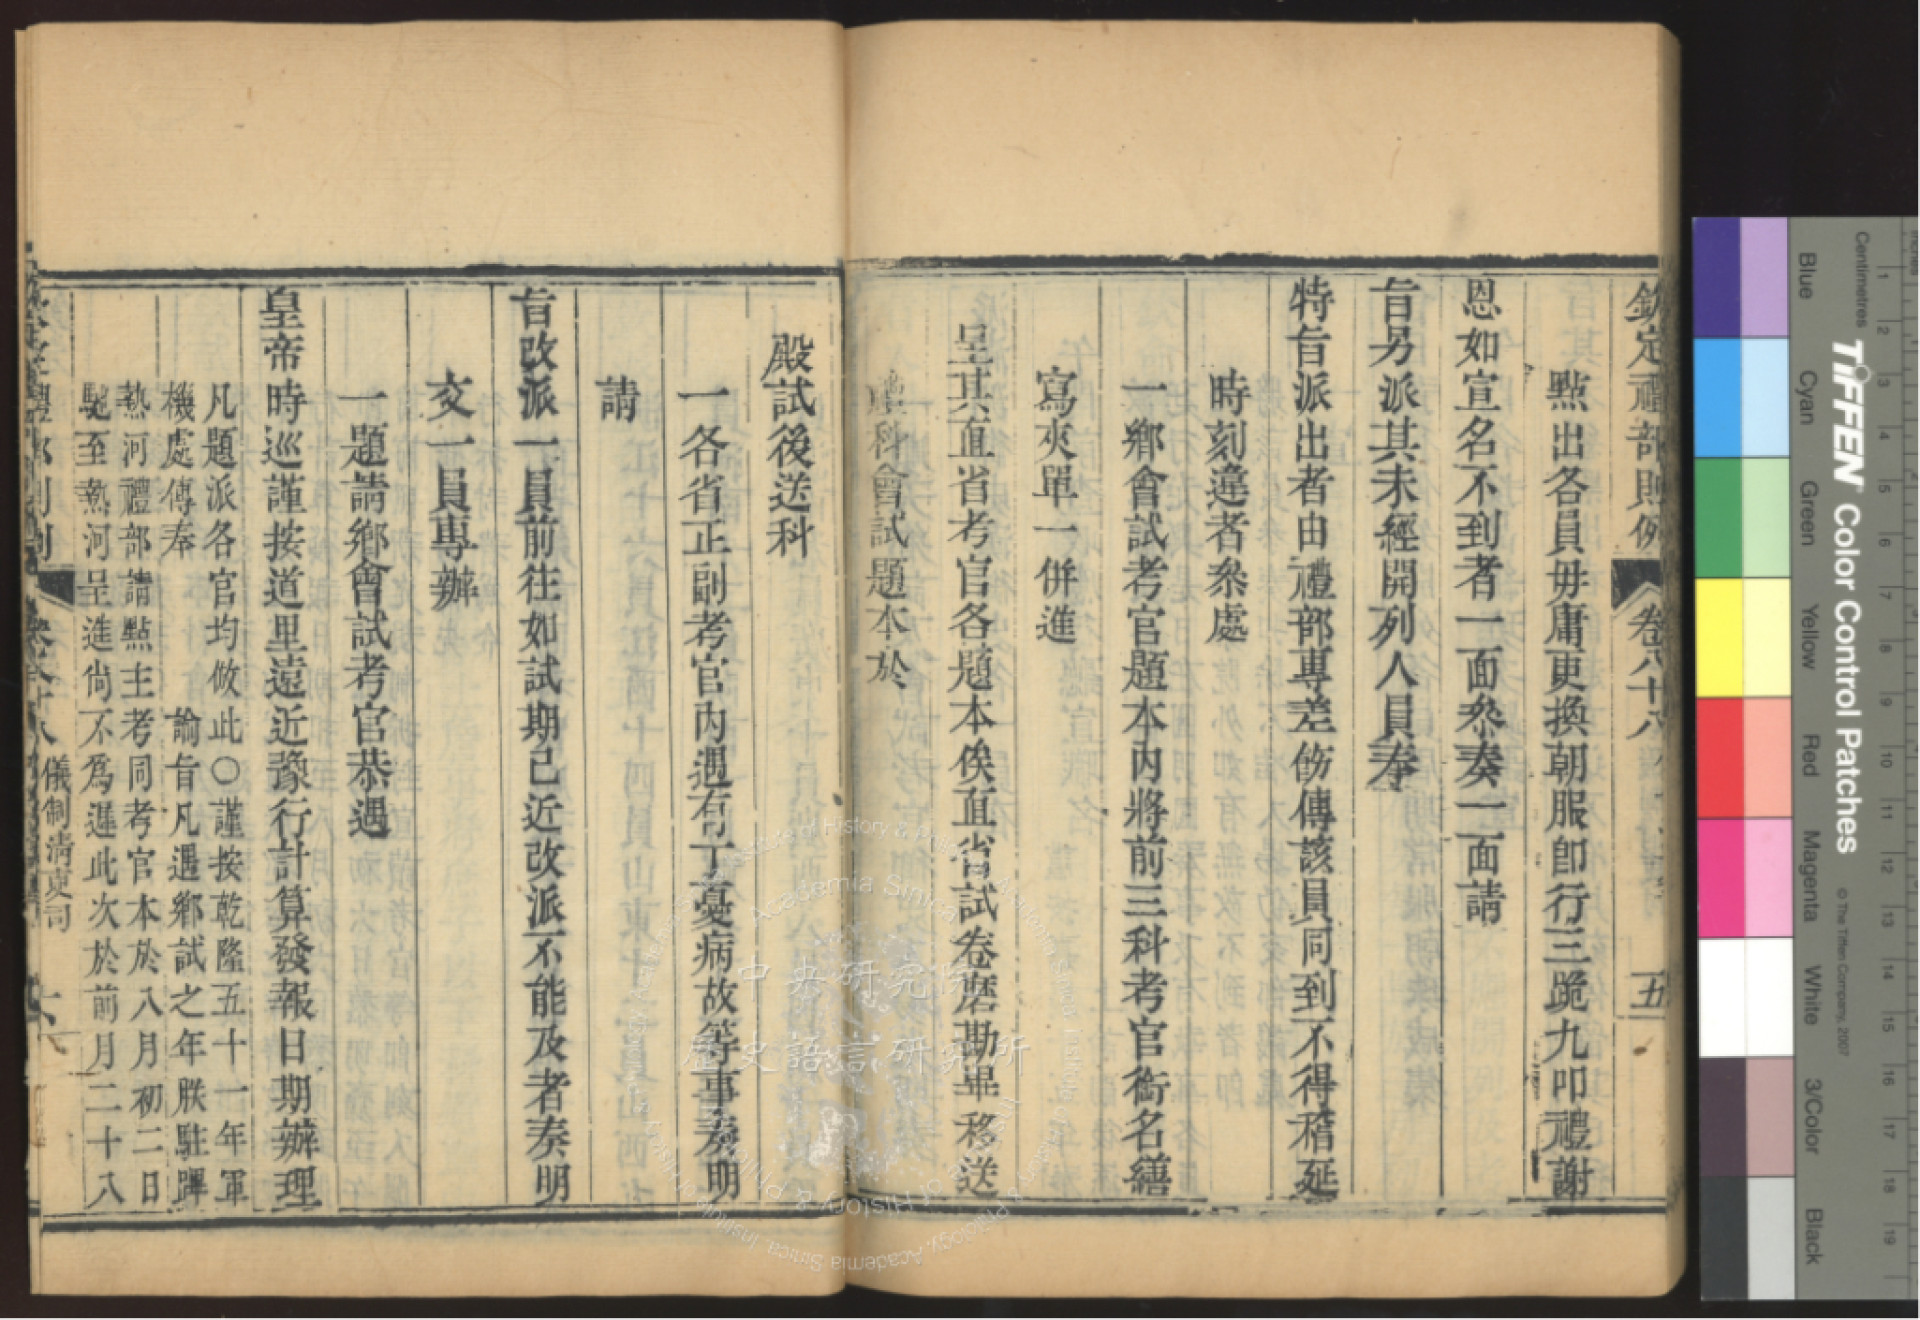 欽定禮部則例
卷八十八
五
點出各員毋庸更換朝服卽行三跪九叩禮謝
恩如宣名不到者一面叅奏一面請
旨另派其未經開列人員奉
特旨派出者由禮部專差飭傳該員同到不得稽延
時刻違者叅處
一鄉會試考官題本內將前三科考官銜名繕
寫夾單一併進
呈其直省考官各題本俟直省試卷磨勘畢移送
科會試題本於
殿試後送科
一各省正副考官內遇有丁憂病故等事奏明
請
旨改派一員前往如試期已近改派不能及者奏明
交一員專辦
一題請鄉會試考官恭遇
皇帝時巡謹按道里遠近豫行計算發報日期辦理
凡題派各官均倣此〇謹按乾隆五十一年軍
機處傳奉 諭旨凡遇鄉試之年朕駐蹕
熱河禮部請點主考同考官本於八月初二日
馳至熱河呈進尙不爲遲此次於前月二十八
儀制淸吏司
中央研究院
歷史語言研究所
Institute of History & Philology, Academia Sinica
Blue
Cyan
Green
Yellow
Red
Magenta
White
3/Color
Black
Centimetres
TIFFEN Color Control Patches
© The Tiffen Company, 2007
1 2 3 4 5 6 7 8 9 10 11 12 13 14 15 16 17 18 19